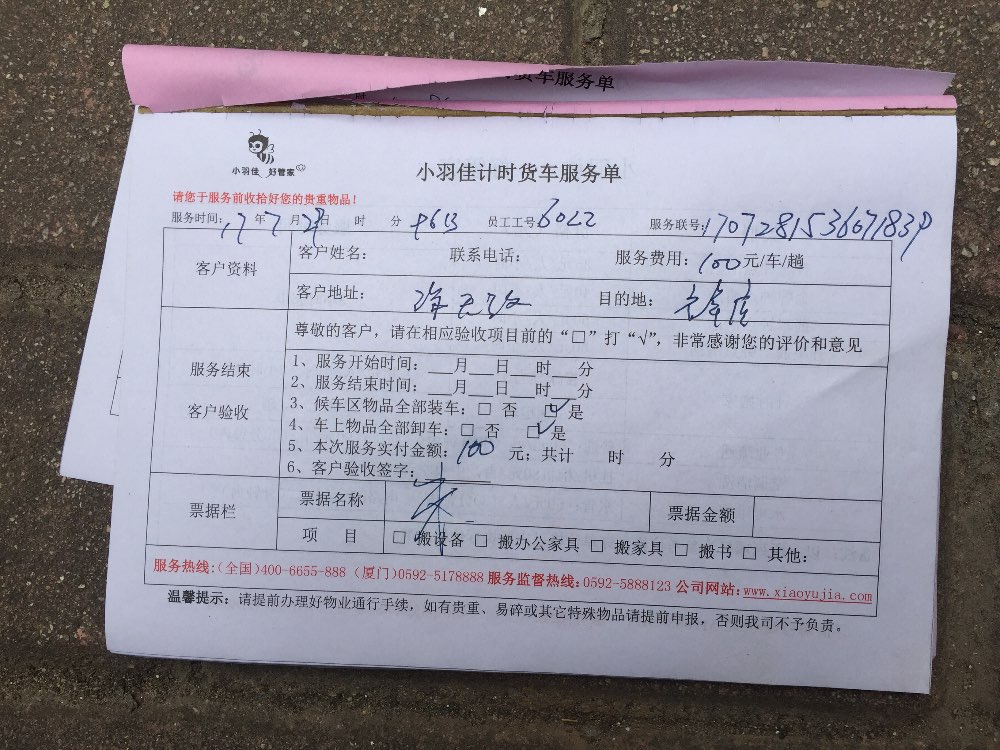 货车服务单
小羽佳 好管家
小羽佳计时货车服务单
请您于服务前收拾好您的贵重物品！
服务时间：17年7月28日 时 分 员工工号 6022 服务联号：
客户资料
客户姓名： 联系电话： 服务费用：100元/车/趟
客户地址： 目的地：
服务结束
客户验收
尊敬的客户，请在相应验收项目前的“□”打“√”，非常感谢您的评价和意见
1、服务开始时间：___月___日___时___分
2、服务结束时间：___月___日___时___分
3、候车区物品全部装车：□ 否 ☑ 是
4、车上物品全部卸车：□ 否 ☑ 是
5、本次服务实付金额：100 元；共计 时 分
6、客户验收签字：
票据栏
票据名称 票据金额
项 目 □ 搬设备 □ 搬办公家具 □ 搬家具 □ 搬书 □ 其他：
服务热线：(全国)400-6655-888 (厦门)0592-5178888 服务监督热线：0592-5888123 公司网站：www.xiaoyujia.com
温馨提示：请提前办理好物业通行手续，如有贵重、易碎或其它特殊物品请提前申报，否则我司不予负责。